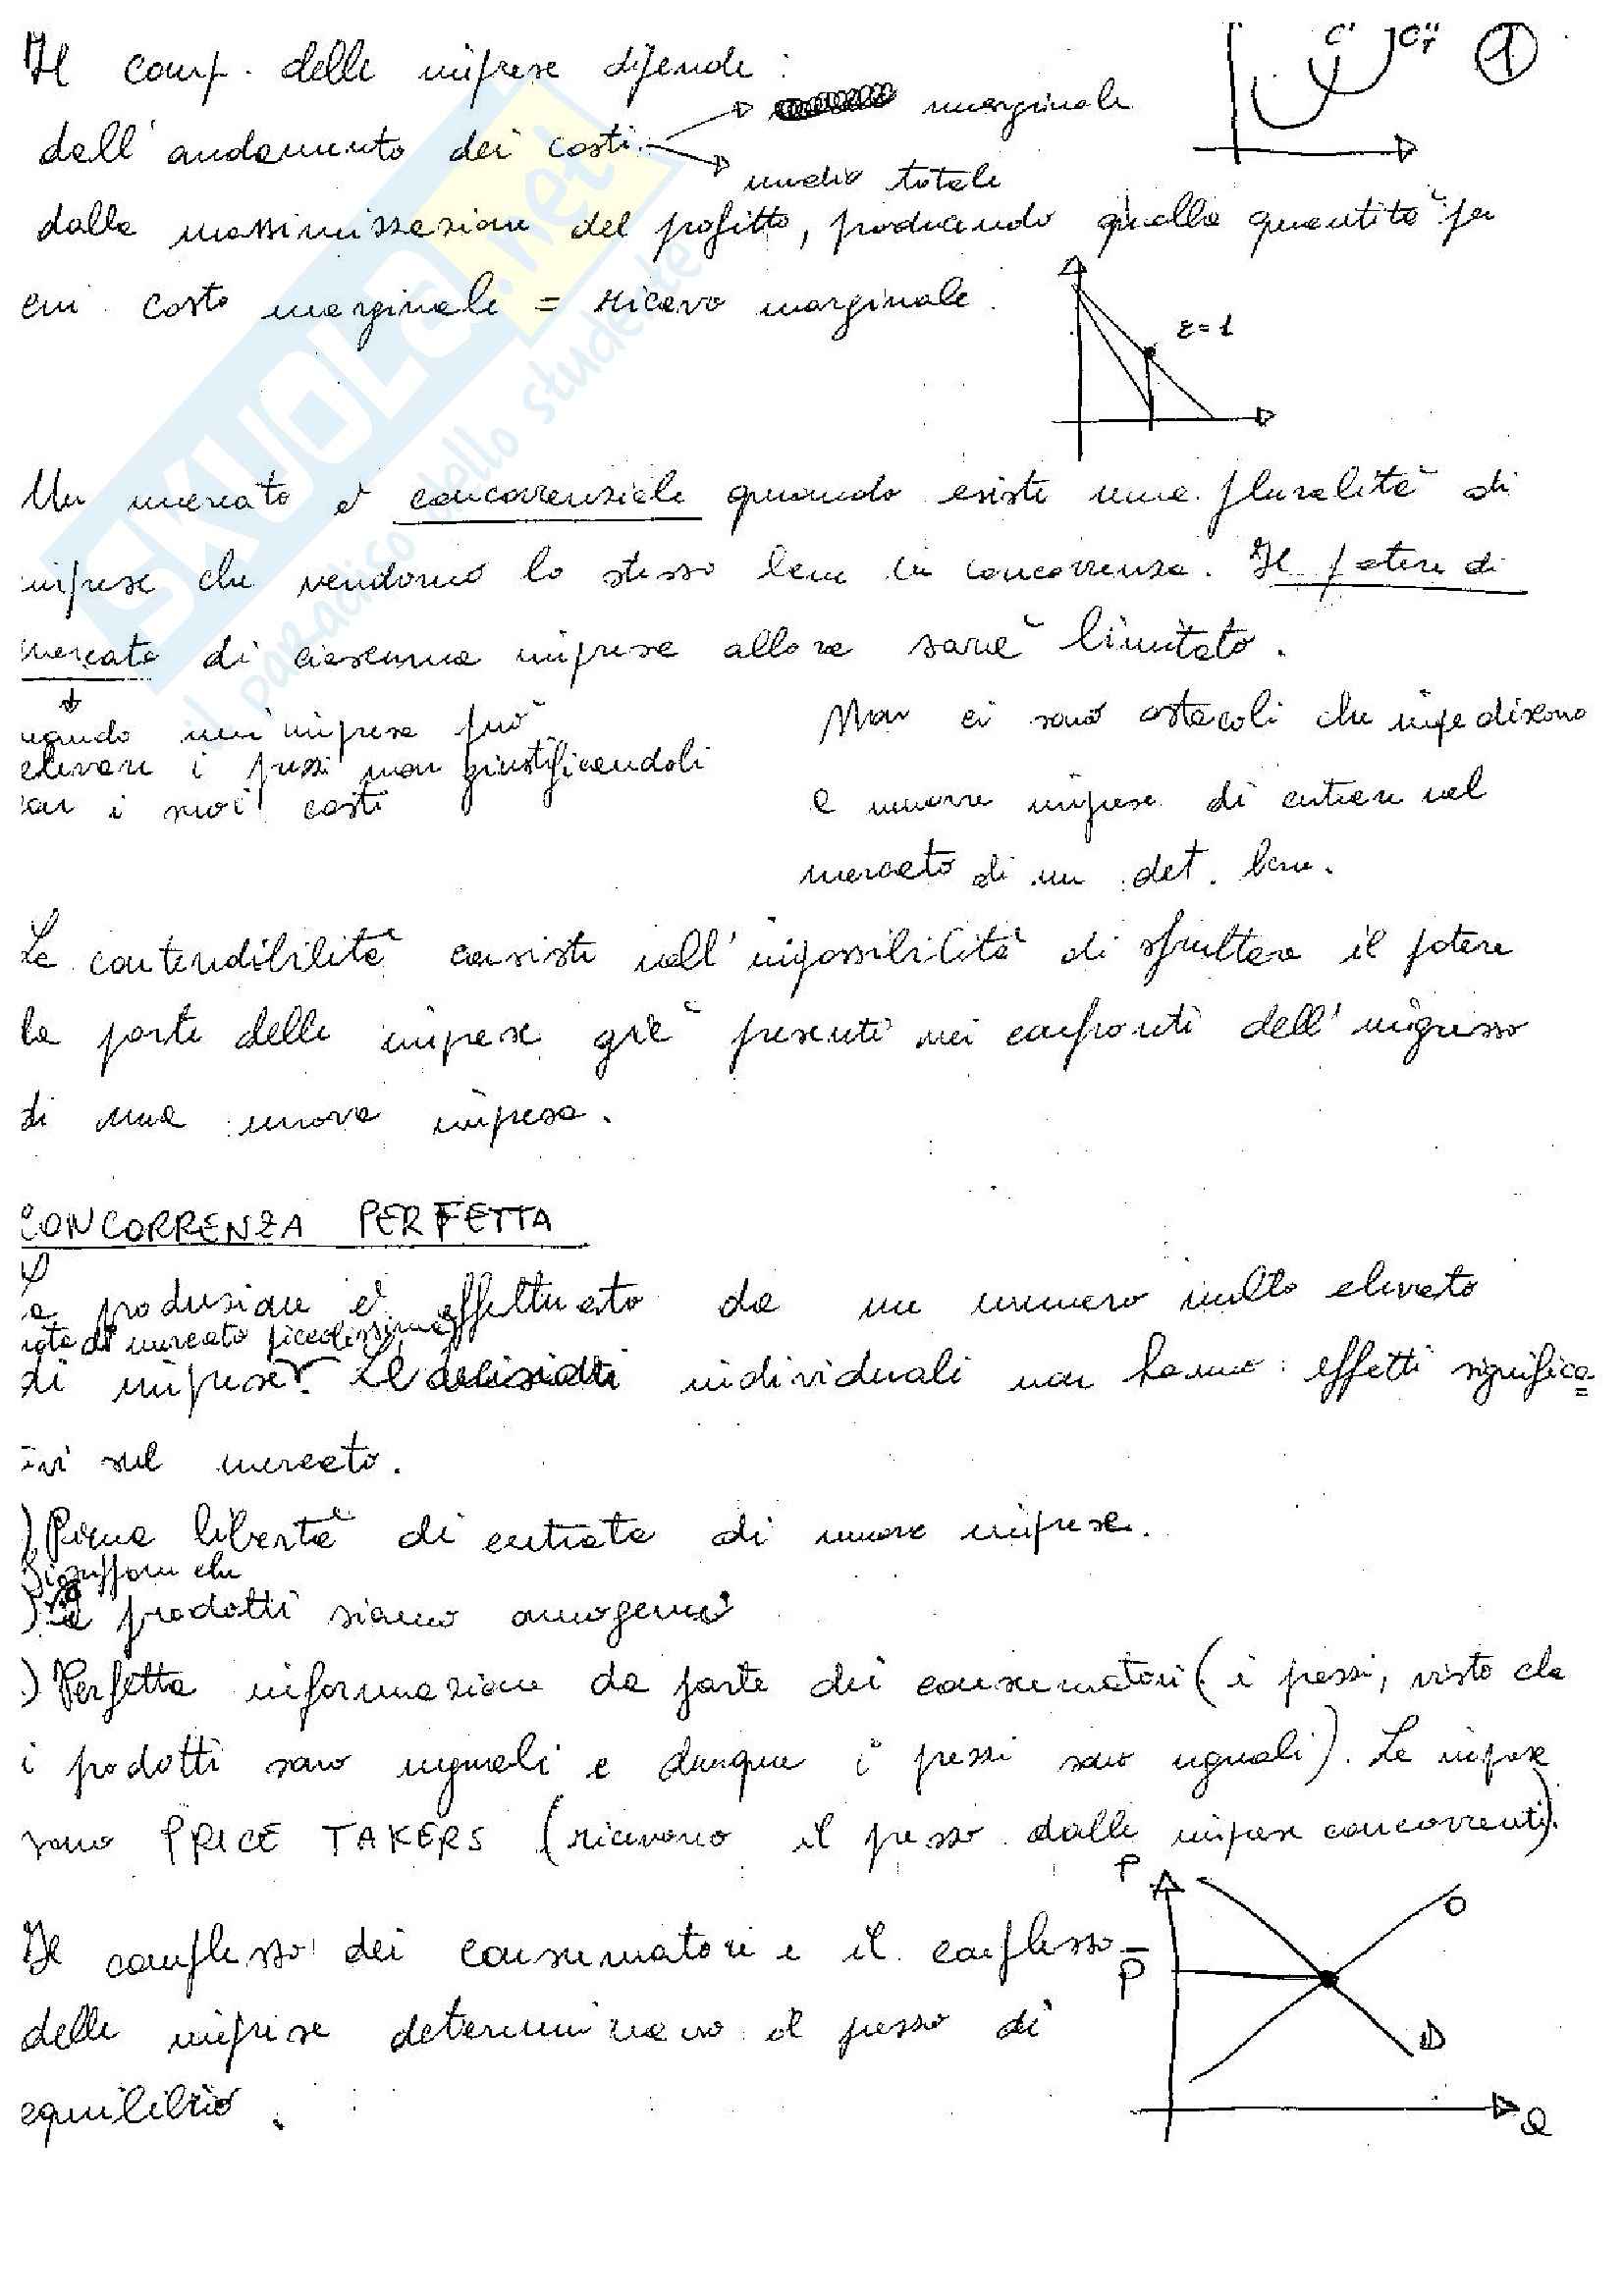 Il comp. delle imprese dipende :
C' C''T 1
marginale
dall'andamento dei costi
medio totale
dalla massimizzazione del profitto, producendo quella quantità per
cui costo marginale = ricavo marginale.
ε=1
Un mercato è concorrenziale quando esiste una pluralità di
imprese che vendono lo stesso bene in concorrenza. Il potere di
mercato di ciascuna impresa allora sarà limitato.
uando un'impresa può
elevare i prezzi non giustificandoli
con i suoi costi
Non ci sono ostacoli che impediscono
a nuove imprese di entrare nel
mercato di un det. bene.
La contendibilità consiste nell'impossibilità di sfruttare il potere
da parte delle imprese già presenti nei confronti dell'ingresso
di una nuova impresa.
CONCORRENZA PERFETTA
a produzione è effettuata da un numero molto elevato
uota di mercato piccolissima
di imprese. Le decisioni individuali non hanno effetti significa
ivi sul mercato.
) Piena libertà di entrata di nuove imprese.
che
) prodotti siano omogenei
.) Perfetta informazione da parte dei consumatori (i prezzi, visto che
i prodotti sono uguali e dunque i prezzi sono uguali). Le imprese
sono PRICE TAKERS (ricevono il prezzo dalle imprese concorrenti).
Il complesso dei consumatori e il complesso
delle imprese determinano il prezzo di
equilibrio.
P
O
P̅
D
Q
SKUOLA.net
il paradiso dello studente